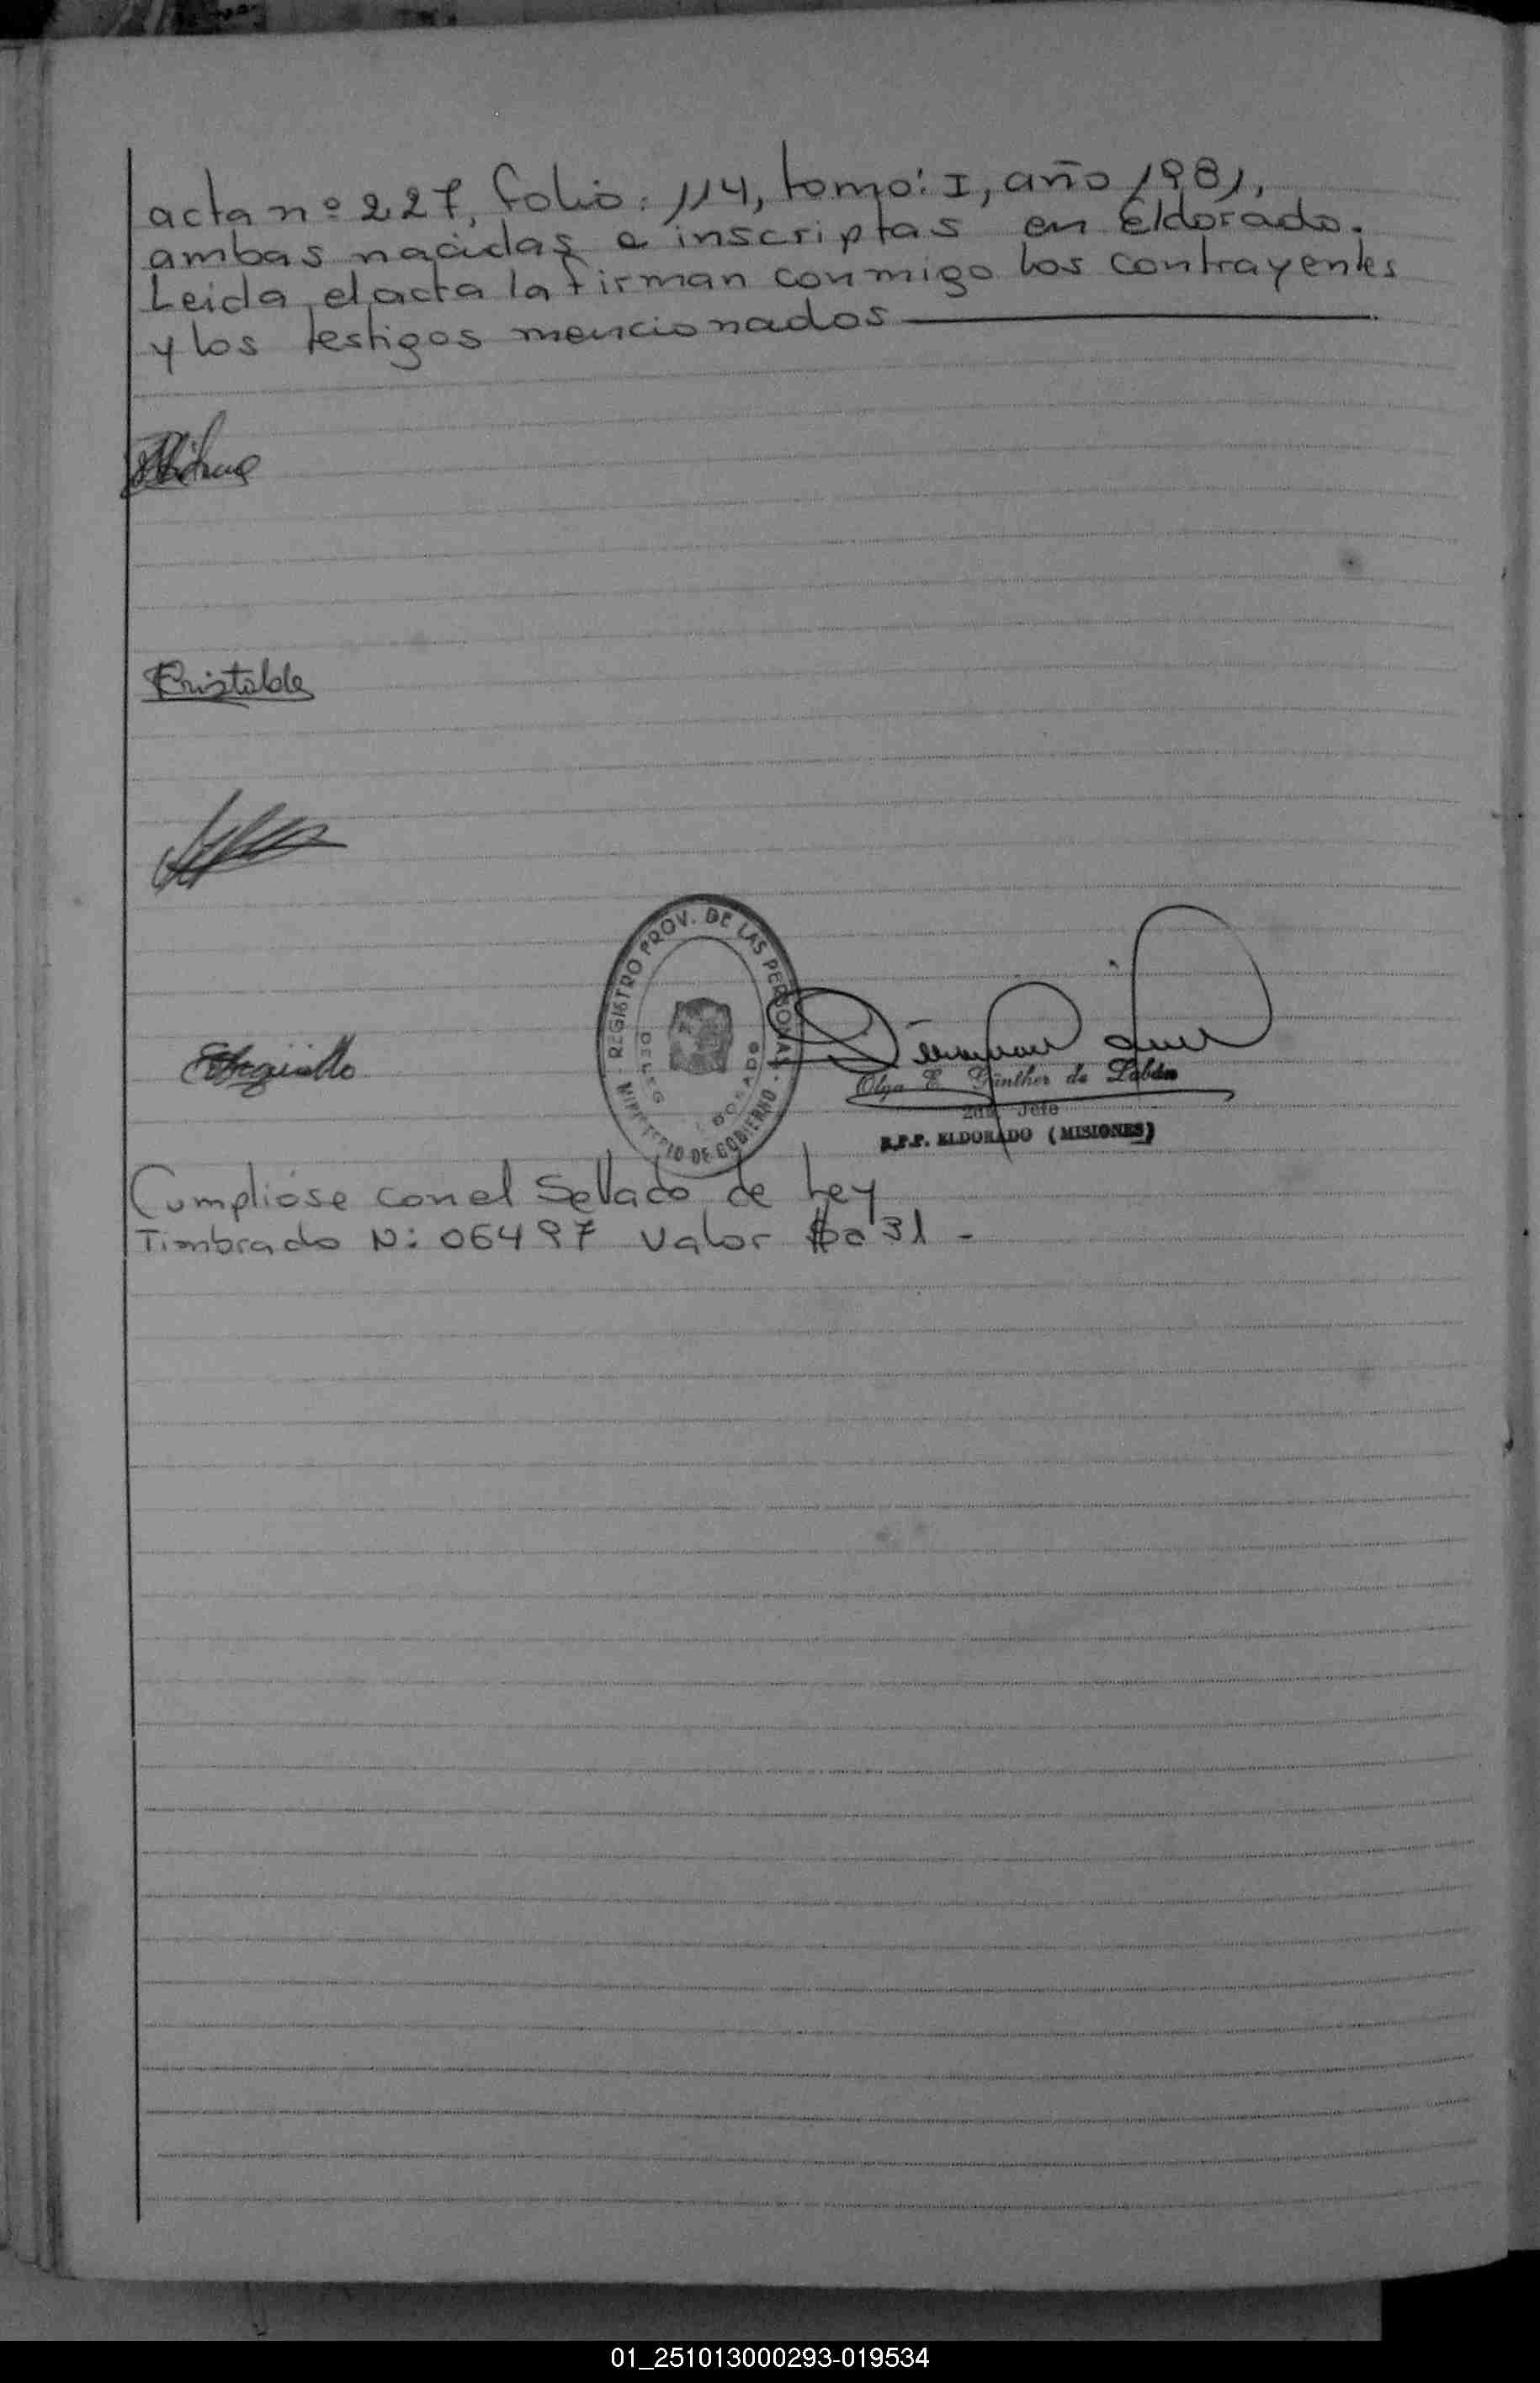 acta nº 227, folio: 114, tomo: I, año 1981,
ambas nacidas e inscriptas en Eldorado.
Leida el acta la firman conmigo los contrayentes
y los testigos mencionados
Cristaldo
REGISTRO PROV. DE LAS PERSONAS
MINISTERIO DE GOBIERNO
Olga E. Günther de
2do Jefe
R.P.P. ELDORADO (MISIONES)
Cumplióse con el Sellado de Ley
Timbrado N: 06497 Valor $a 31 -
01_251013000293-019534